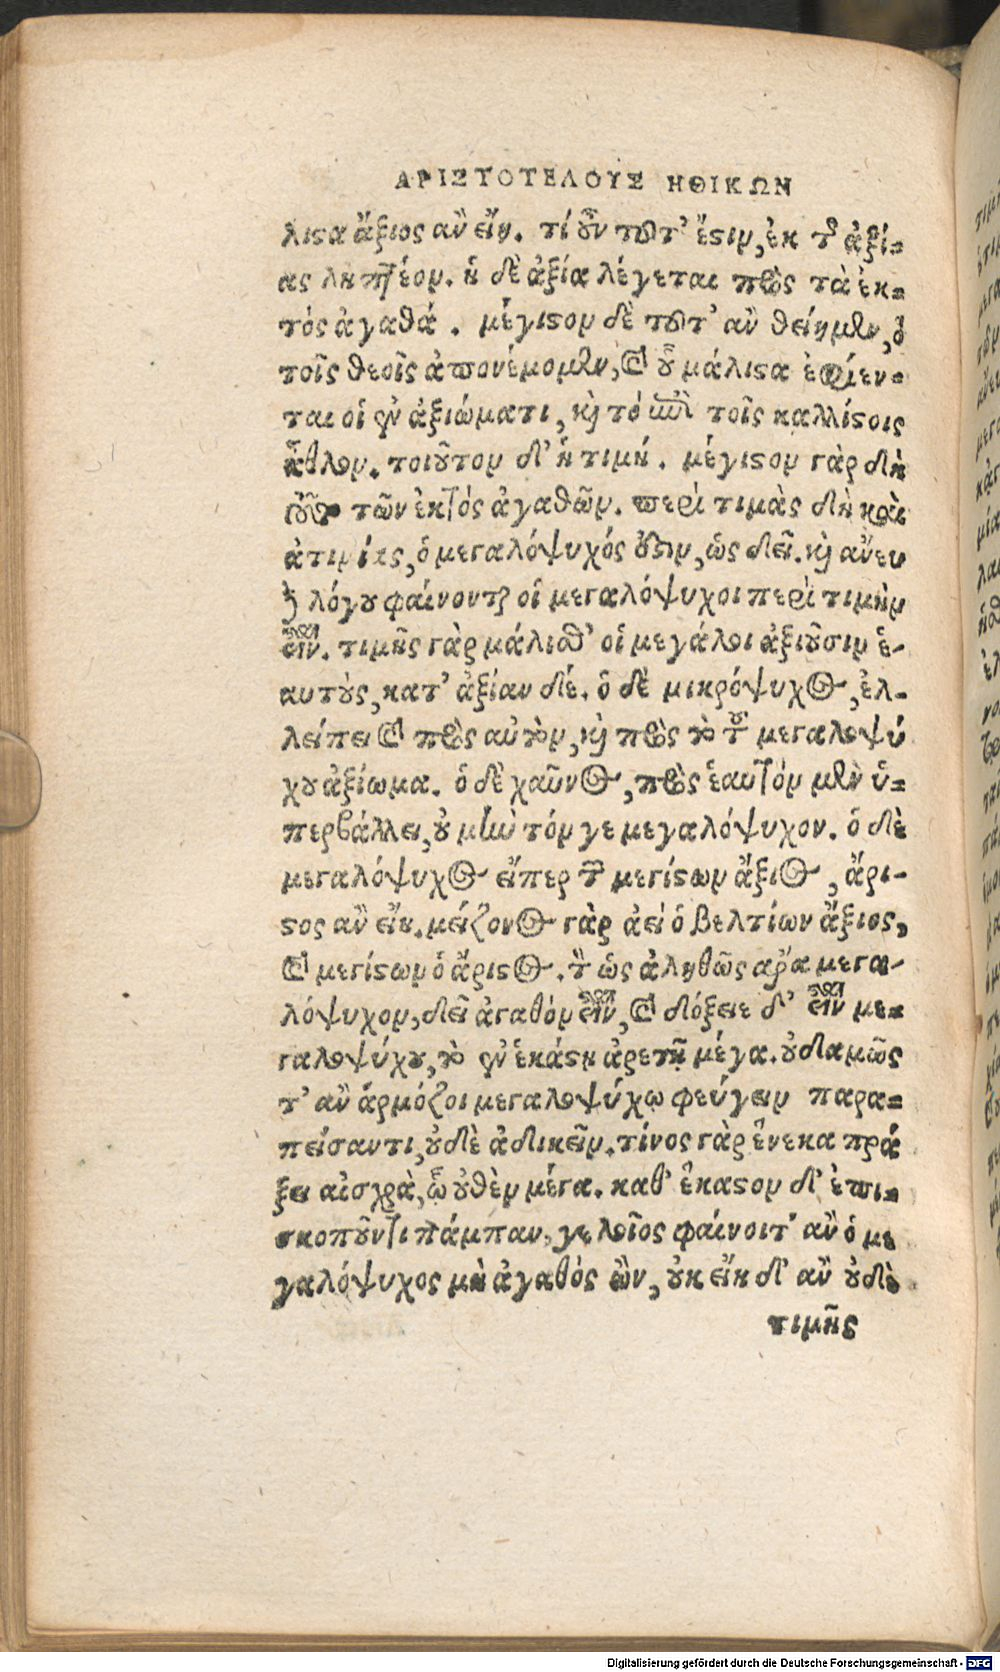 ΑΡΙΣΤΟΤΕΛΟΥΣ ΗΘΙΚΩΝ
λιϛα ἄξιος ἂν εἴη. τί οὖν τοῦτ' ἔϛιν, ἐκ τῆς ἀξί=
ας ληπτέον. ἡ δὲ ἀξία λέγεται πρὸς τὰ ἐκ=
τὸς ἀγαθά. μέγιϛον δὲ τοῦτ' ἂν θείημεν, ὃ
τοῖς θεοῖς ἀπονέμομεν, καὶ οὗ μάλιϛα ἐφίεν=
ται οἱ ἐν ἀξιώματι, καὶ τὸ ἐπὶ τοῖς καλλίϛοις
ἆθλον. τοιοῦτον δ' ἡ τιμή. μέγιϛον γὰρ δὴ
τοῦτο τῶν ἐκτὸς ἀγαθῶν. περὶ τιμὰς δὴ καὶ
ἀτιμίας, ὁ μεγαλόψυχός ἐϛιν, ὡς δεῖ. καὶ ἄνευ
δὲ λόγου φαίνονται οἱ μεγαλόψυχοι περὶ τιμὴν
εἶναι. τιμῆς γὰρ μάλισθ' οἱ μεγάλοι ἀξιοῦσιν ἑ-
αυτοὺς, κατ' ἀξίαν δέ. ὁ δὲ μικρόψυχος, ἐλ-
λείπει καὶ πρὸς αὑτὸν, καὶ πρὸς τὸ τοῦ μεγαλοψύ
χου ἀξίωμα. ὁ δὲ χαῦνος, πρὸς ἑαυτὸν μὲν ὑ=
περβάλλει, οὐ μὴν τόν γε μεγαλόψυχον. ὁ δὲ
μεγαλόψυχος εἴπερ τῶν μεγίϛων ἄξιος, ἄρι-
ϛος ἂν εἴη. μείζονος γὰρ ἀεὶ ὁ βελτίων ἄξιος,
καὶ μεγίϛων ὁ ἄριϛος. τὸν ὡς ἀληθῶς ἄρα μεγα-
λόψυχον, δεῖ ἀγαθὸν εἶναι, καὶ δόξειε δ' εἶναι με=
γαλοψύχου, τὸ ἐν ἑκάϛῃ ἀρετῇ μέγα. οὐδαμῶς
τ' ἂν ἁρμόζοι μεγαλοψύχῳ φεύγειν παρα=
πείσαντι, οὐδὲ ἀδικεῖν. τίνος γὰρ ἕνεκα πρά
ξει αἰσχρὰ, ᾧ οὐθὲν μέγα. καθ' ἕκαϛον δ' ἐπι=
σκοποῦντι πάμπαν, γελοῖος φαίνοιτ' ἂν ὁ με
γαλόψυχος μὴ ἀγαθὸς ὢν, οὐκ εἴη δ' ἂν οὐδὲ
τιμῆς
Digitalisierung gefördert durch die Deutsche Forschungsgemeinschaft - DFG